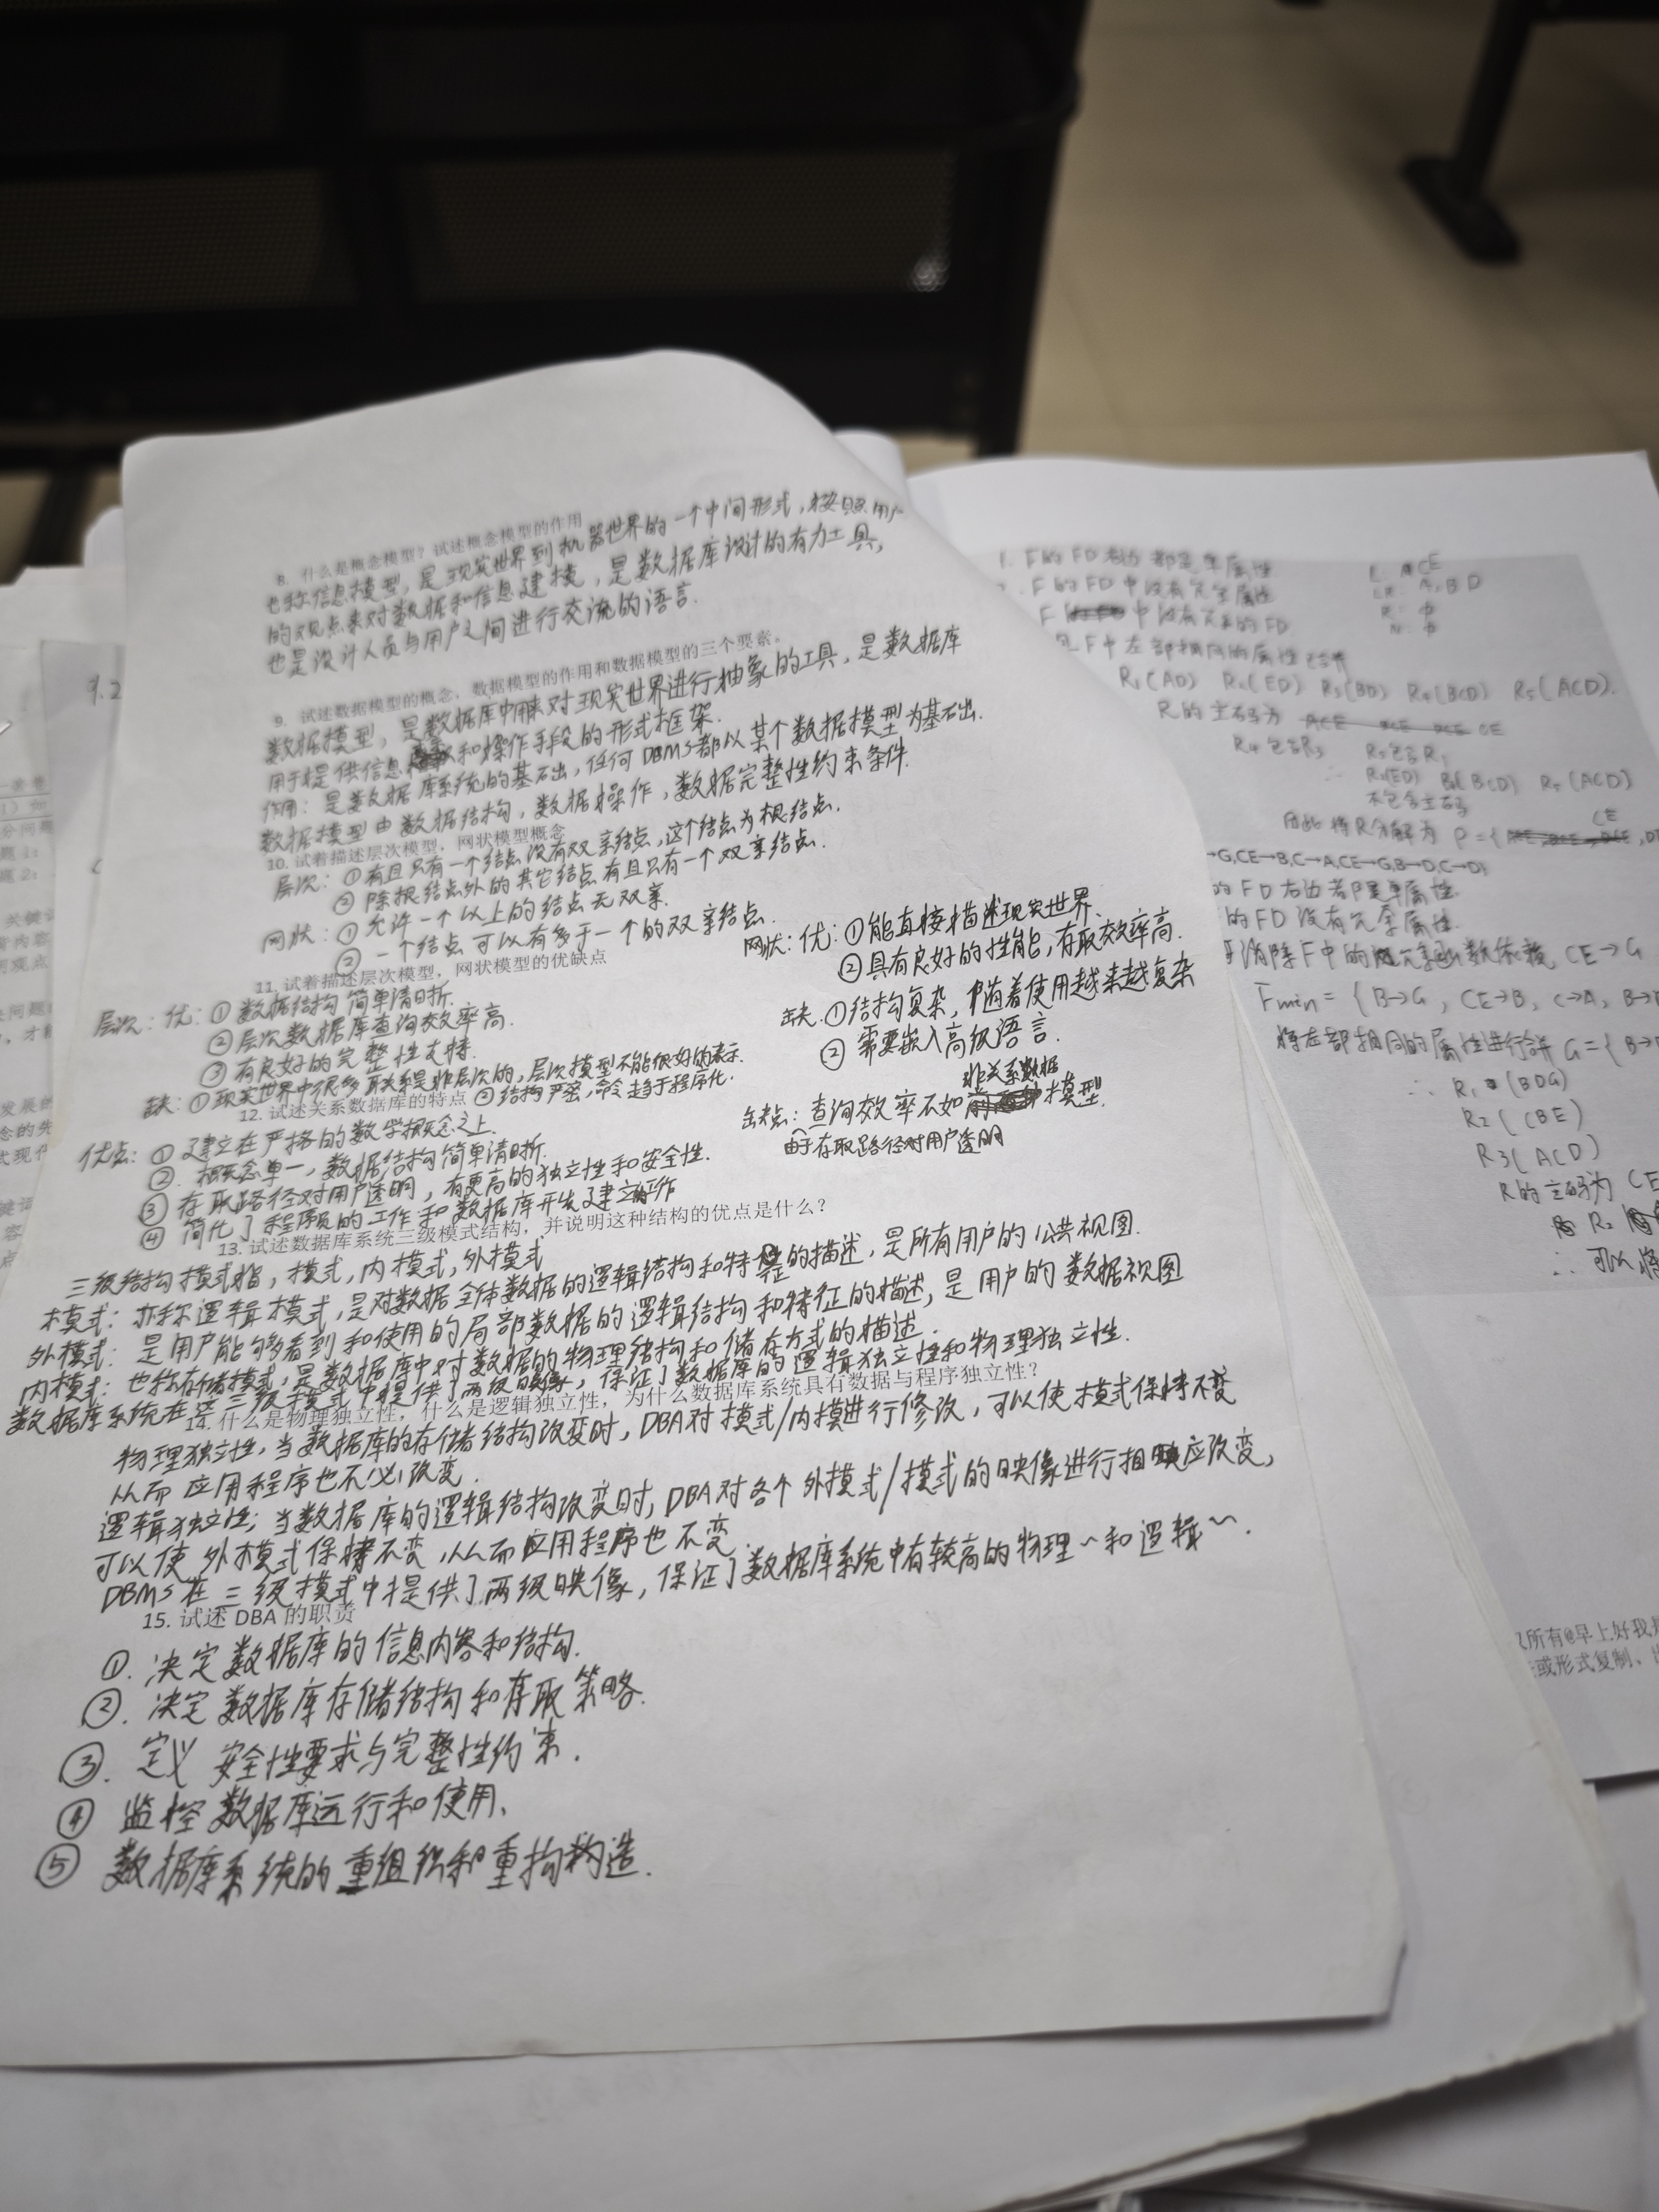 8. 什么是概念模型？试述概念模型的作用
也称信息模型，是现实世界到机器世界的一个中间形式，按照用户
的观点来对数据和信息建模，是数据库设计的有力工具，
也是设计人员与用户之间进行交流的语言.
9. 试述数据模型的概念、数据模型的作用和数据模型的三个要素。
数据模型，是数据库中用来对现实世界进行抽象的工具，是数据库
用于提供信息和操作手段的形式框架.
作用：是数据库系统的基础，任何DBMS都以某个数据模型为基础.
数据模型由数据结构，数据操作，数据完整性约束条件.
10. 试着描述层次模型，网状模型概念
层次：①有且只有一个结点没有双亲结点，这个结点为根结点.
②除根结点外的其它结点有且只有一个双亲结点.
网状：①允许一个以上的结点无双亲.
②一个结点可以有多于一个的双亲结点.
11. 试着描述层次模型，网状模型的优缺点
层次：优：①数据结构简单清晰.
②层次数据库查询效率高.
③有良好的完整性支持.
缺：①现实世界中很多联系是非层次的，层次模型不能很好的表示
②结构严密，命令趋于程序化.
网状：优：①能直接描述现实世界、
②具有良好的性能，存取效率高.
缺.①结构复杂，随着使用越来越复杂
②需要嵌入高级语言.
12. 试述关系数据库的特点
优点：①建立在严格的数学概念之上.
②.概念单一，数据结构简单清晰.
③存取路径对用户透明，有更高的独立性和安全性.
④简化了程序员的工作和数据库开发建立工作
缺点：查询效率不如非关系数据模型.
由于存取路径对用户透明
13. 试述数据库系统三级模式结构，并说明这种结构的优点是什么？
三级结构模式指，模式，内模式，外模式
模式：亦称逻辑模式，是对数据全体数据的逻辑结构和特征的描述，是所有用户的公共视图.
外模式：是用户能够看到和使用的局部数据的逻辑结构和特征的描述，是用户的数据视图
内模式：也称存储模式，是数据库中对数据的物理结构和储存方式的描述.
数据库系统在这三级模式中提供了两级映像，保证了数据库的逻辑独立性和物理独立性.
14. 什么是物理独立性，什么是逻辑独立性，为什么数据库系统具有数据与程序独立性？
物理独立性，当数据库的存储结构改变时，DBA对模式/内模进行修改，可以使模式保持不变
从而应用程序也不必改变.
逻辑独立性；当数据库的逻辑结构改变时，DBA对各个外模式/模式的映像进行相应改变，
可以使外模式保持不变，从而应用程序也不变.
DBMS在三级模式中提供了两级映像，保证了数据库系统中有较高的物理~和逻辑~.
15. 试述 DBA 的职责
①.决定数据库的信息内容和结构.
②.决定数据库存储结构和存取策略.
③.定义安全性要求与完整性约束.
④监控数据库运行和使用、
⑤数据库系统的重组织和重构构造.
9.2
1. F的FD右边都是单属性
F的FD中没有冗余属性
F中没有冗余的FD
R₁(AD) R₂(ED) R₃(BD) R₄(BCD) R₅(ACD).
R的主码为 CE
R₄包含R₃ R₅包含R₁
R₂(ED) R₄(BCD) R₅(ACD)
不包含主码
因此将R分解为 ρ={
→G,CE→B,C→A,CE→G,B→D,C→D}
的FD右边都是单属性
的FD没有冗余属性.
CE→G
Fmin = { B→G, CE→B, C→A, B→
将左部相同的属性进行合并 G={ B→
∴ R₁(BDG)
R₂(CBE)
R₃(ACD)
R的主码为 CE
R₂
∴ 可以将
所有@早上好我
或形式复制、